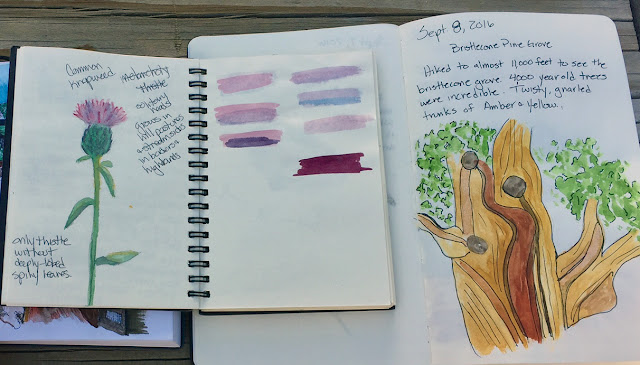 Common
Knapweed
melancholy
thistle
solitary
head
grows in
hill pastures
+ streamsides
in borders +
highlands
only thistle
without
deeply-lobed
spiny leaves.
Sept 8, 2016
Bristlecone Pine Grove
Hiked to almost 11000 feet to see the
bristlecone grove. 4000 year old trees
were incredible. Twisty, gnarled
trunks of Amber & Yellow.